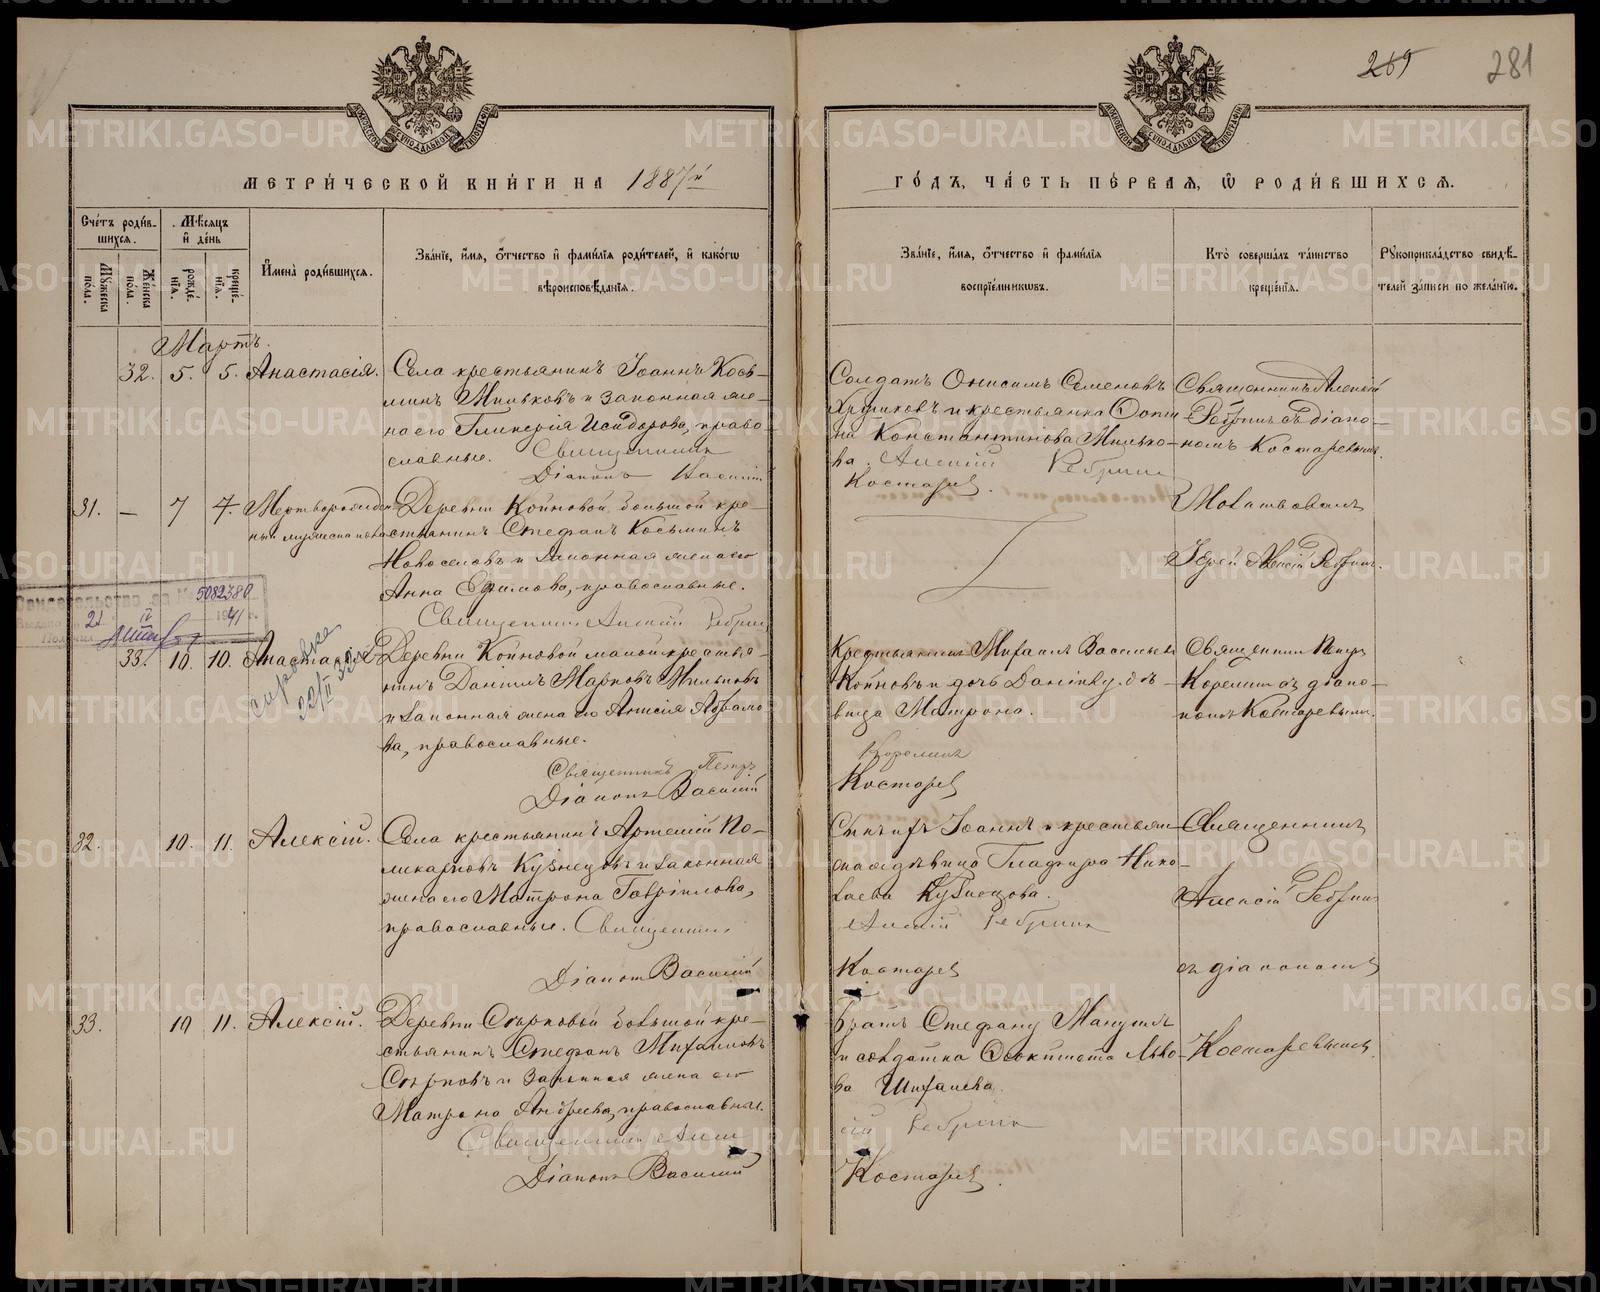 269 281
МЕТРИ́ЧЕСКОЙ КНИ́ГИ НА 1887й
ГО́ДЪ, ЧА́СТЬ ПЕ́РВАЯ, Ѽ РОДИ́ВШИХСѦ.
Сче́тъ роди́вшихсѧ.
Мꙋ́жеска пола.
Же́нска пола.
Мѣ́сѧцъ и҆ де́нь
рожде́нїѧ.
креще́нїѧ.
И҆мена̀ роди́вшихсѧ.
Зва́нїе, и҆́мѧ, ѻ҆́тчество и҆ фами́лїѧ роди́телей, и҆ како́гѡ
вѣроисповѣ́данїѧ.
Зва́нїе, и҆́мѧ, ѻ҆́тчество и҆ фами́лїѧ
воспрїе́мникѡвъ.
Кто̀ соверша́лъ та́инство
креще́нїѧ.
Рꙋкоприкла́дство свидѣ́-
телей за́писи по жела́нїю.
Мартъ.
32. 5. 5. Анастасія.
Села крестьянинъ Іоаннъ Козь-
минъ Мильковъ и законная же-
на его Гликерія Исидорова, право-
славные. Священникъ
Діаконъ Василій
Солдатъ Онисимъ Семеновъ
и крестьянка
Константинова Милько-
ва. Алексій Ребринъ
Костаревъ.
Священникъ Алексій
Ребринъ съ діако-
номъ Костаревымъ.
31. — 7 7. Мертворожден-
ный мужеска пола
Деревни Койновой большой кре-
стьянинъ Стефанъ Козьминъ
Новоселовъ и законная жена его
Анна Ефимова, православные.
Священникъ Алексій Ребринъ
Молитвовалъ
Іерей Алексій Ребринъ.
5082380
21 IV 1941 г.
33. 10. 10. Анастасія
справка
22/II
Деревни Койновой малой крестья-
нинъ Даніилъ Марковъ Мильковъ
и законная жена его Анисія Абрамо-
ва, православные.
Священникъ Петръ
Діаконъ Василій
Крестьянинъ Михаилъ Васильевъ
Койновъ и дочь Даніилу дѣ-
вица Матрона.
Корелинъ
Костаревъ
Священникъ Петръ
Корелинъ съ діако-
номъ Костаревымъ.
32. 10. 11. Алексій.
Села крестьянинъ Артемій По-
ликарповъ Кузнецовъ и законная
жена его Матрона Гавріилова,
православные. Священникъ
Діаконъ Василій
Іоаннъ и крестьян-
ская дѣвица Глафира Нико-
лаева Кузнецова.
Алексій Ребринъ
Костаревъ
Священникъ
Алексій Ребринъ
съ діакономъ
33. 10 11. Алексій.
Деревни Сырковой большой кре-
стьянинъ Стефанъ Михаиловъ
Сырковъ и законная жена его
Матрона Андреева, православные.
Священникъ Алек
Діаконъ Василій
Братъ Стефану Мануилъ
и солдатка Львo-
ва Шихалева.
сій Ребринъ
Костаревъ.
Костаревымъ.
METRIKI.GASO-URAL.RU